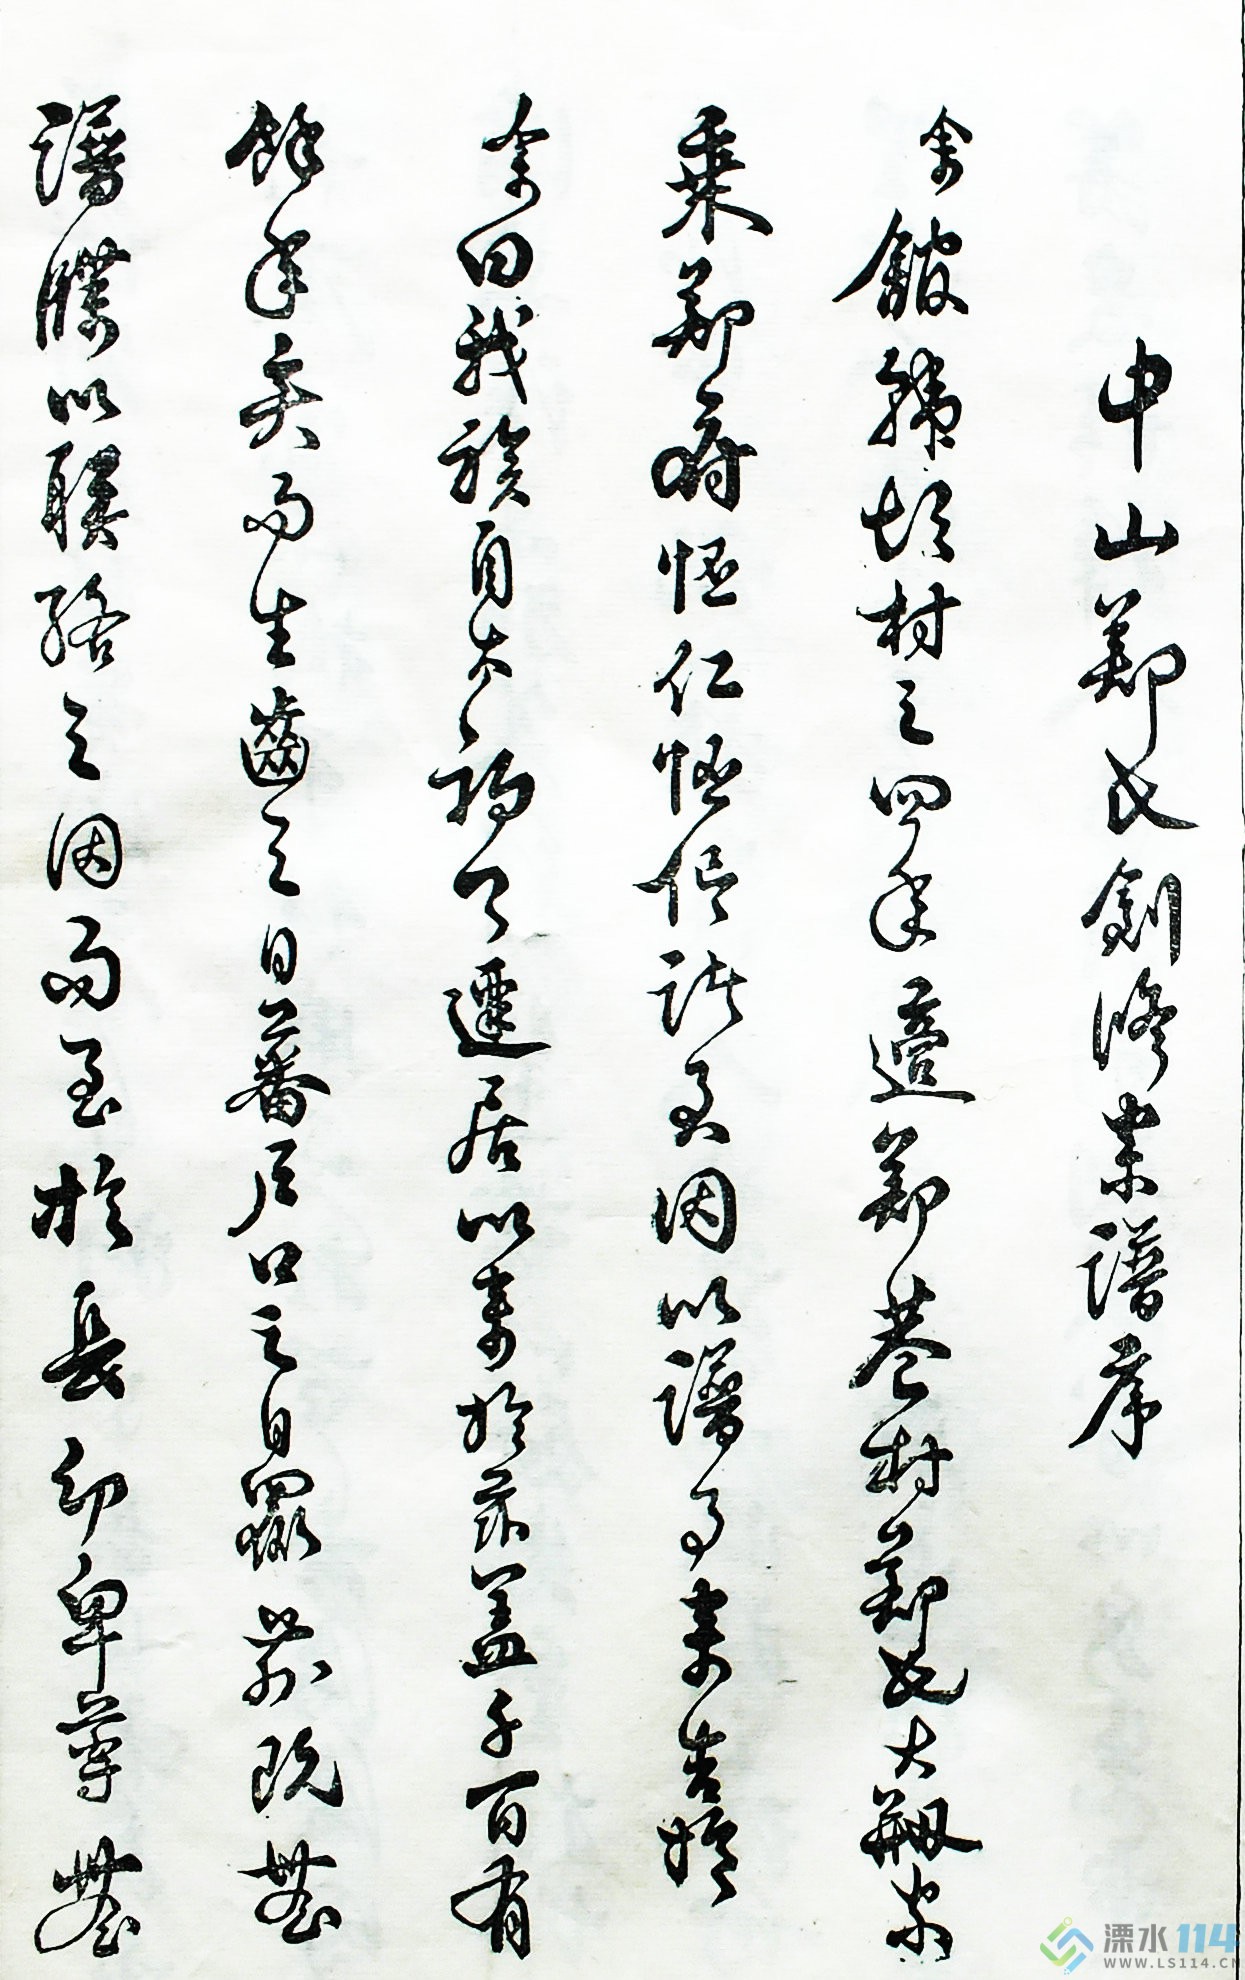 中山鄭氏創修宗譜序
余館韓垻村之四年適鄭巷村鄭氏大翻宗
乘鄭府恆仁恆信諸君因以譜事來告於
余曰我族自太初公遷居以來於茲蓋千百有
餘年矣而生齒之日蕃戶口之日眾前既無
譜牒以聯絡之因而至於長幼卑尊無
溧水114
WWW.LS114.CN